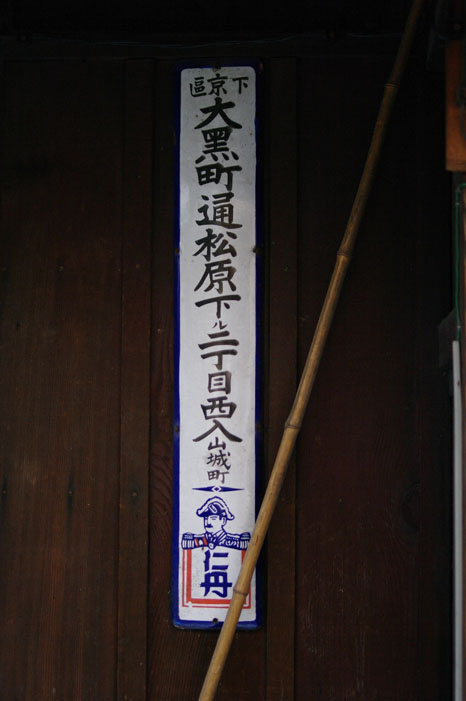 下京區
大黑町通松原下ル二丁目西入山城町
仁丹